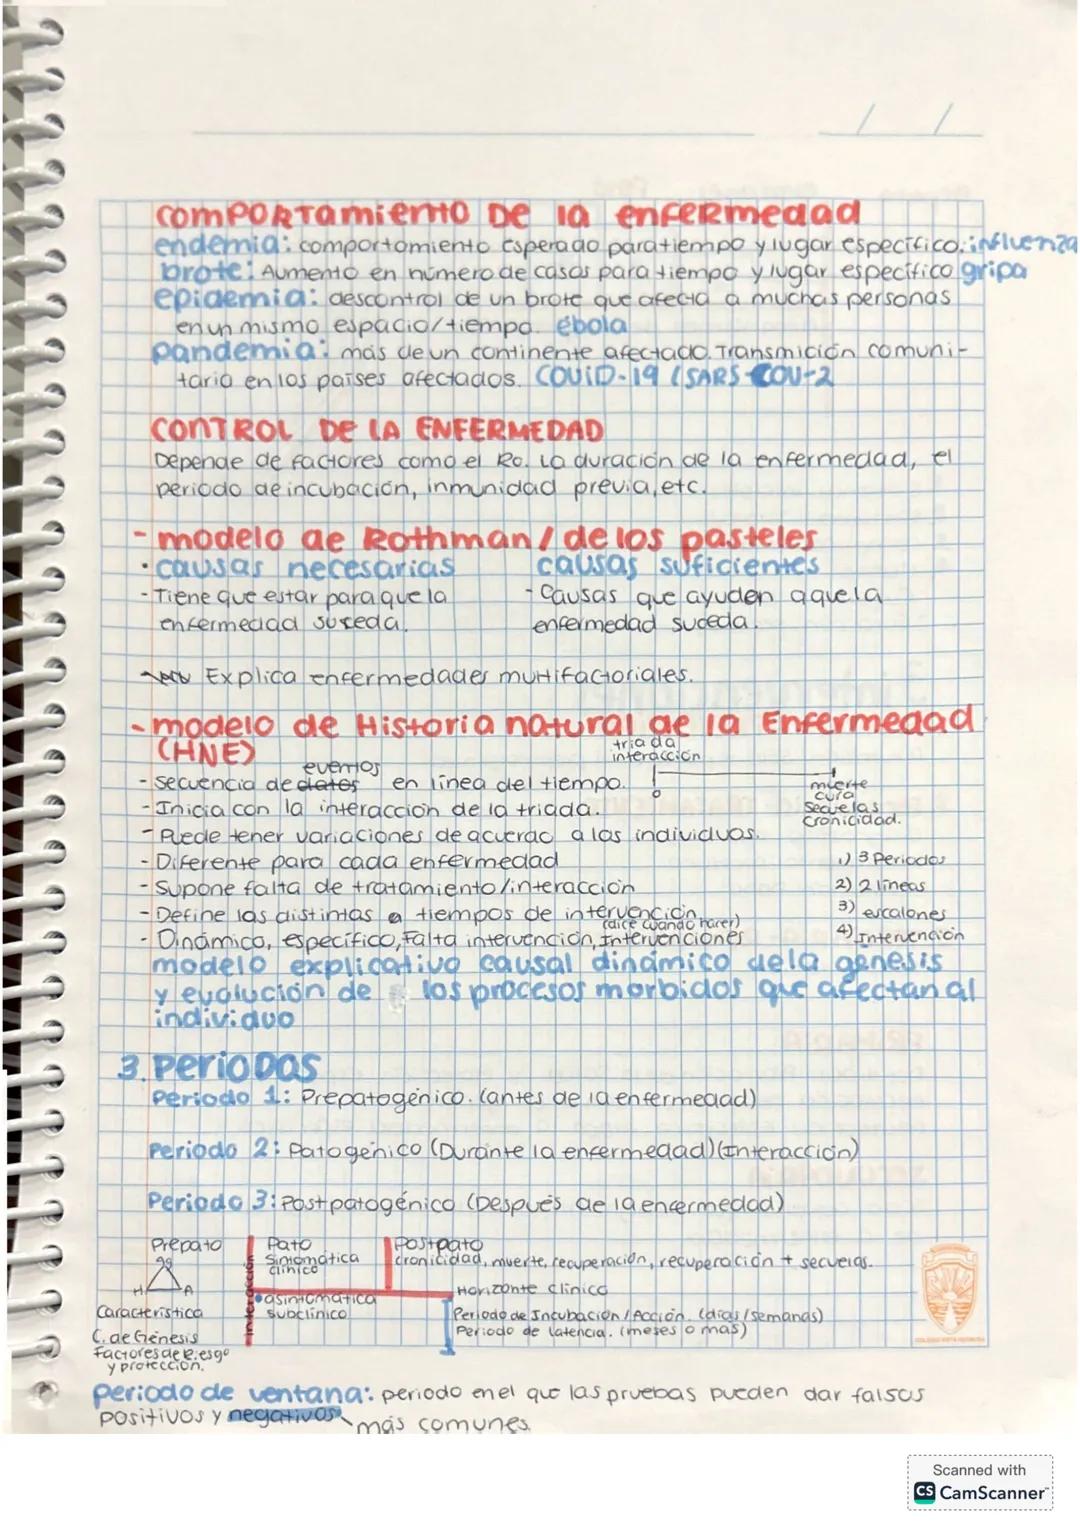 / /
comPORTamiento De la enfeRmedad
endemia: comportamiento esperado para tiempo y lugar específico. influenza
brote: Aumento en número de casos para tiempo y lugar específico gripa
epidemia: descontrol de un brote que afecta a muchas personas
en un mismo espacio/tiempo. ébola
pandemia: más de un continente afectado. Transmición comuni-
taria en los países afectados. COVID-19 (SARS-COV-2
CONTROL DE LA ENFERMEDAD
Depende de factores como el R0. La duración de la enfermedad, el
periodo de incubación, inmunidad previa, etc.
- modelo de Rothman / de los pasteles
· causas necesarias causas suficientes
- Tiene que estar para que la - Causas que ayuden a que la
enfermedad suceda. enfermedad suceda.
Explica enfermedades multifactoriales.
- modelo de Historia natural de la Enfermedad
(HNE) triada
interacción
eventos
- secuencia de datos en línea del tiempo.
muerte
cura
secuelas
cronicidad.
- Inicia con la interacción de la triada.
- Puede tener variaciones de acuerdo a los individuos.
- Diferente para cada enfermedad 1) 3 Periodos
- Supone falta de tratamiento/interacción 2) 2 líneas
- Define las distintas a tiempos de intervención 3) escalones
(dice cuando hacer)
- Dinámico, específico, Falta intervención, Intervenciones 4) Intervención
modelo explicativo causal dinámico de la génesis
y evolución de los procesos morbidos que afectan al
individuo
3. Periodos
Periodo 1: Prepatogénico. (antes de la enfermedad)
Periodo 2: Patogénico (Durante la enfermedad) (Interacción)
Periodo 3: Postpatogénico (Después de la enfermedad)
Prepato Pato Postpato
ag Sintomática cronicidad, muerte, recuperación, recuperación + secuelas.
clínico
H A Horizonte clínico
interacción
• asintomática
Característica subclínico Periodo de Incubación / Acción. (días/semanas)
Periodo de latencia. (meses o más)
C. de Génesis
Factores de Riesgo
y protección.
periodo de ventana: periodo en el que las pruebas pueden dar falsos
positivos y negativos más comunes.
Scanned with
CS CamScanner